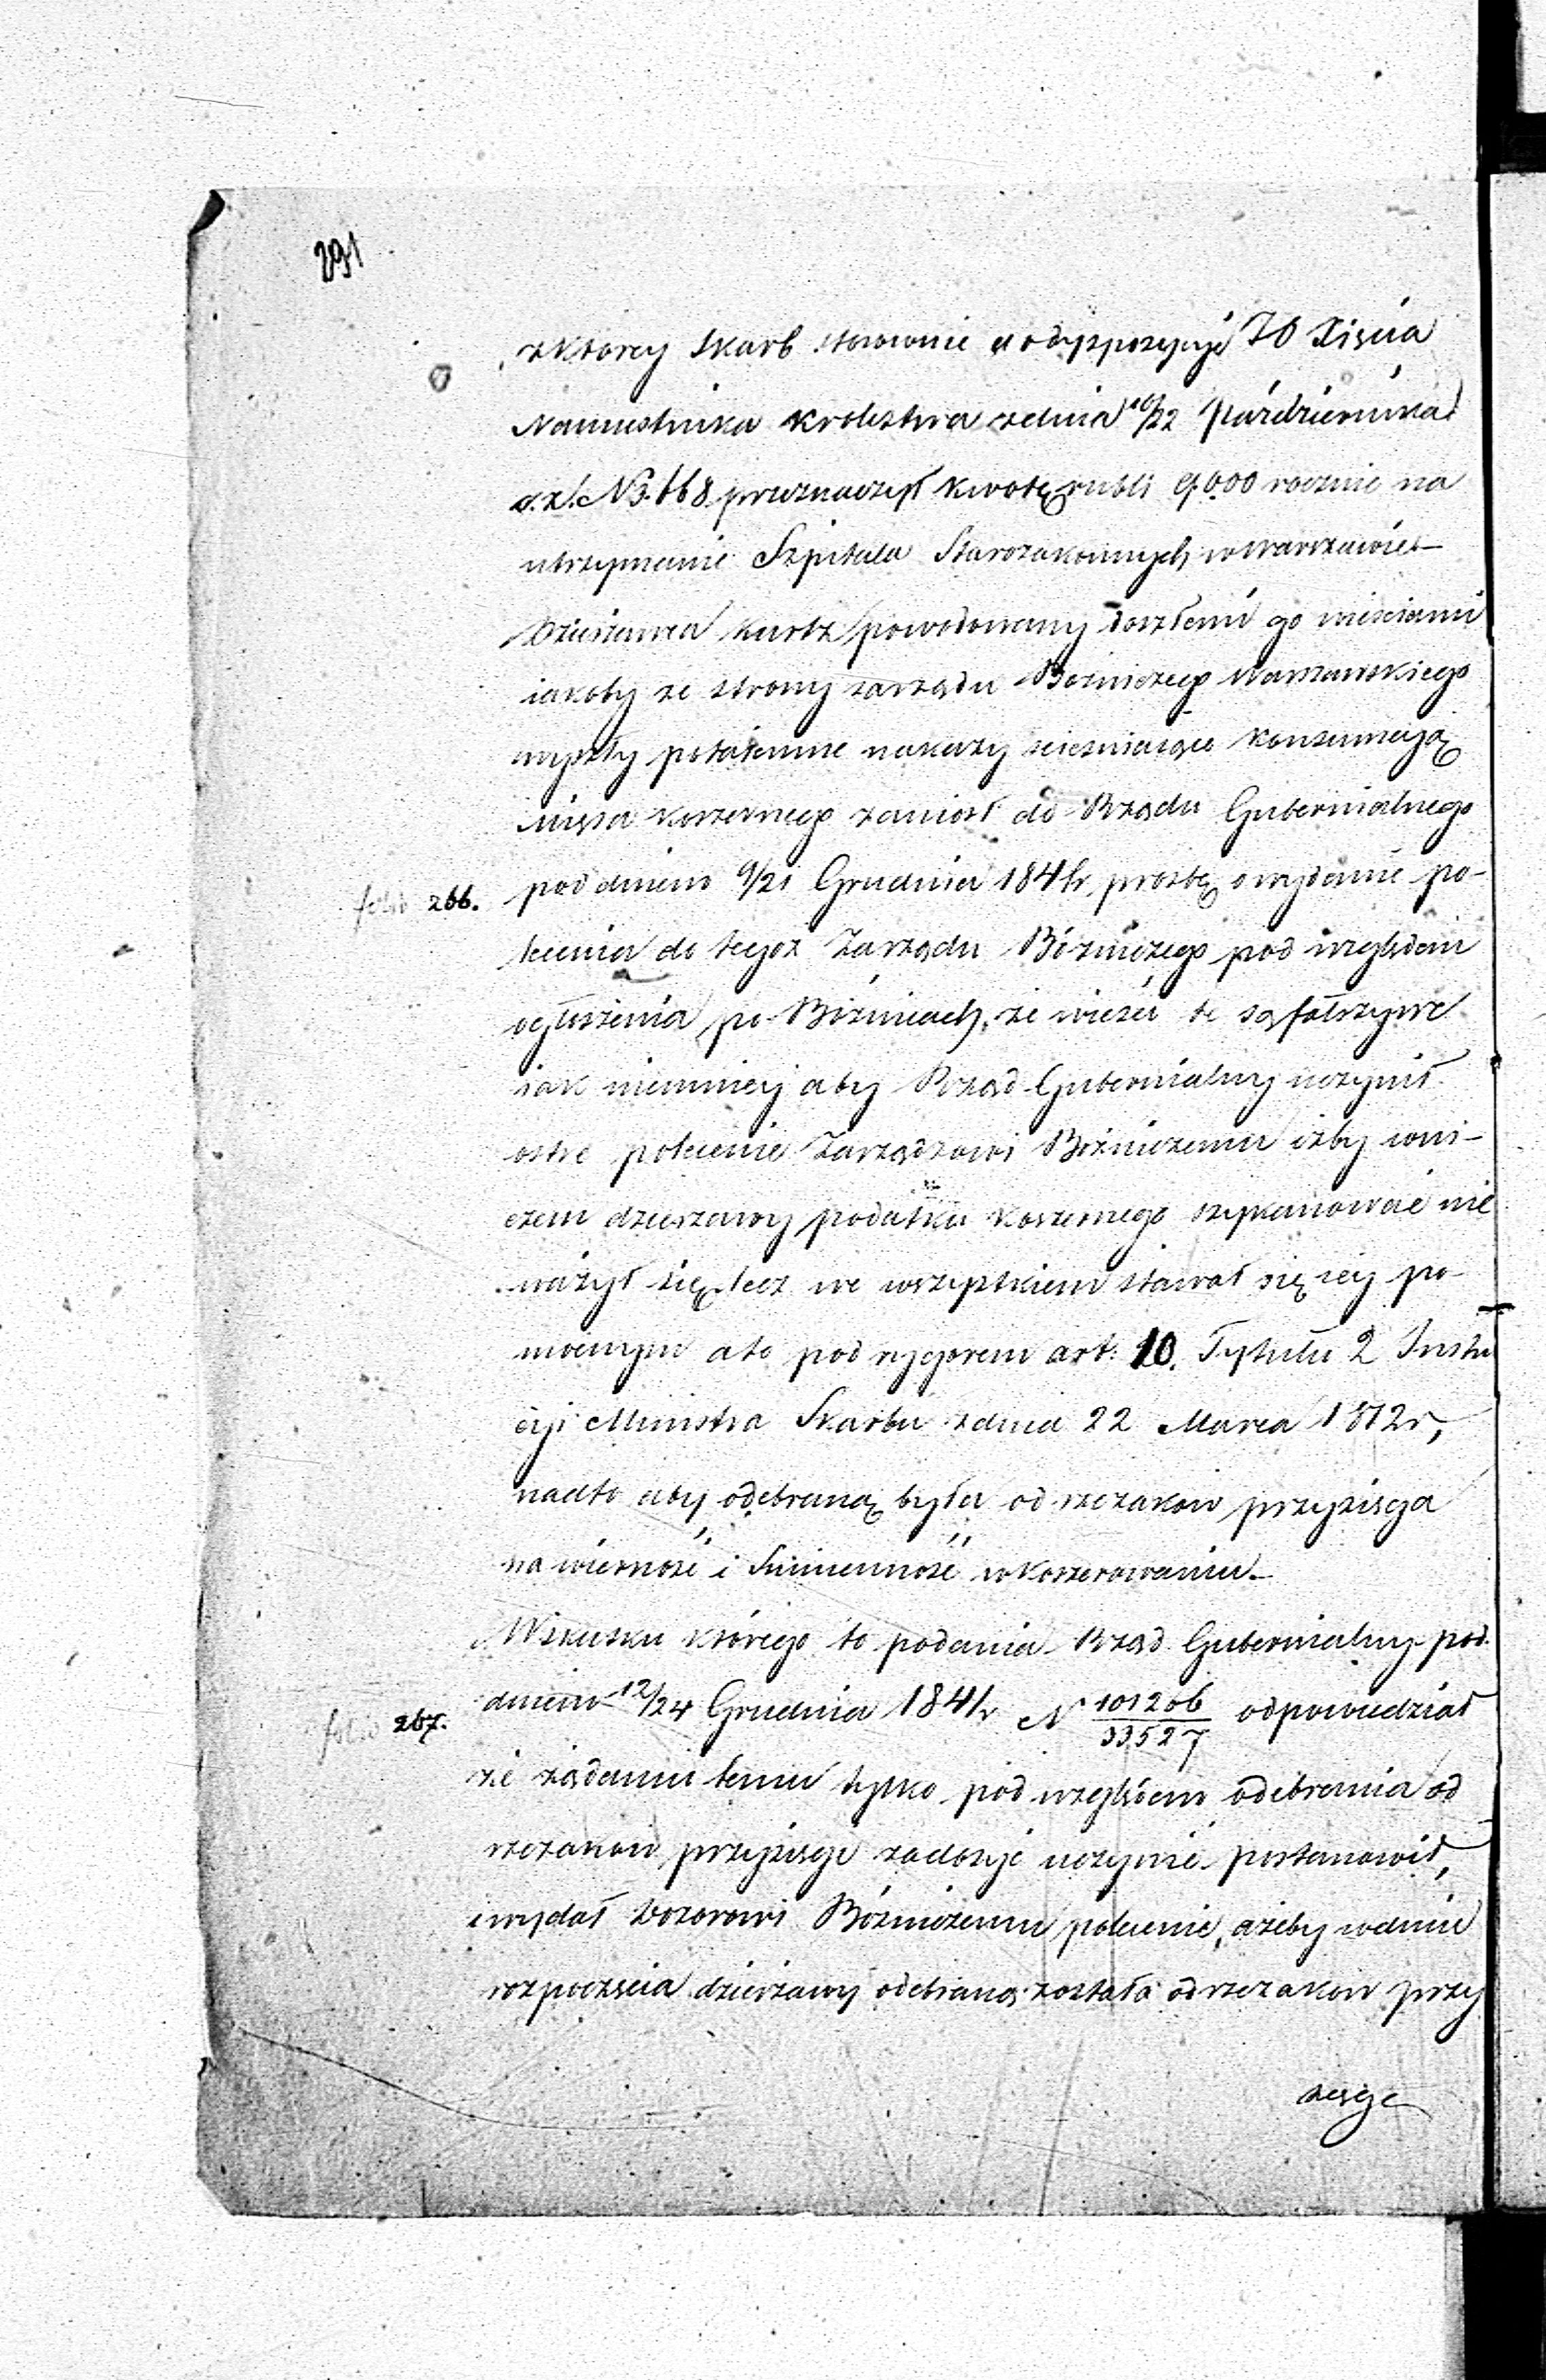 291
z którey Skarb stosownie do dyspozycyi JO Xięcia
Namiestnika Krolestwa z dnia 10/22 Października
a.z. No. 668 przeznaczył kwotę rubli 9000 rocznie na
utrzymanie Szpitala Starozakonnych w Warszawie –
Dzierżawca Kurtz powodowany doszłemi go wieściami
iakoby ze strony zarządu Bożniczego Warszawskiego
wyszły potaiemne nakazy ścieśniaiące konsumcyją
mięsa koszernego zaniosł do Rządu Gubernialnego
folio 266. pod dniem 9/21 Grudnia 1841r prożbę o wydanie po-
lecenia do tegoż Zarządu Bóżniczego pod względem
ogłoszenia po Bożnicach, że wieści te są fałszywe
iak niemniey aby Rząd Gubernialny uczynił
ostre polecenie Zarządzowi Bożniczemu iżby wni-
czem dzierżawy podatku koszernego szykanować nie
ważył się, lecz we wszystkiem stawał się iey po-
mocnym a to pod rygorem art: 10. Tytułu 2 Instru
cyi Ministra Skarbu z dnia 22 Marca 1812r,
nadto aby odebraną była od rzezakow przysięga
na wierność i Summienność w koszerowaniu –
W skutku którego to podania Rząd Gubernialny pod
folio 267. dniem 12/24 Grudnia 1841r N 101206/33527 odpowiedział
że żądaniu temu tylko pod względem odebrania od
rzezakow przysięgi zadosyć uczynić postanowił,
i wydał Dozorowi Bóżniczemu polecenie, ażeby w dniu
rozpoczęcia dzierżawy odebraną została od rzezakow przy
sięga